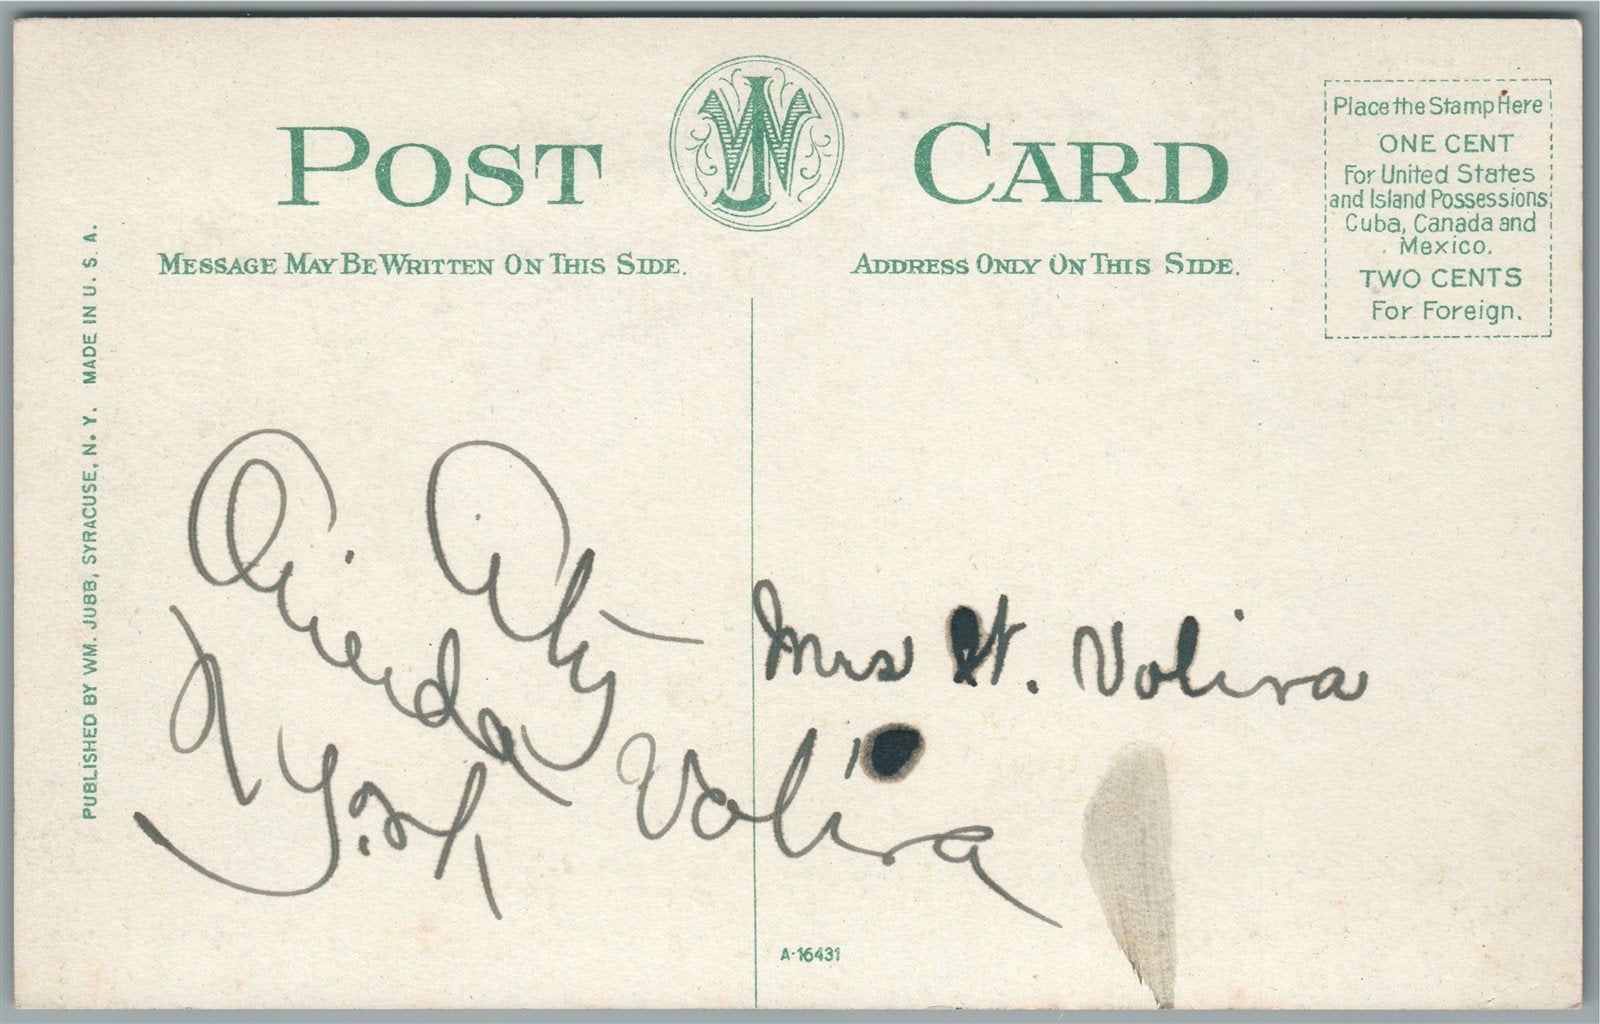 POST CARD
MESSAGE MAY BE WRITTEN ON THIS SIDE.
ADDRESS ONLY ON THIS SIDE.
Place the Stamp Here
ONE CENT
For United States
and Island Possessions,
Cuba, Canada and
Mexico.
TWO CENTS
For Foreign.
PUBLISHED BY WM. JUBB, SYRACUSE, N. Y. MADE IN U. S. A.
Mrs H. Voliva
Voliva
A-16431